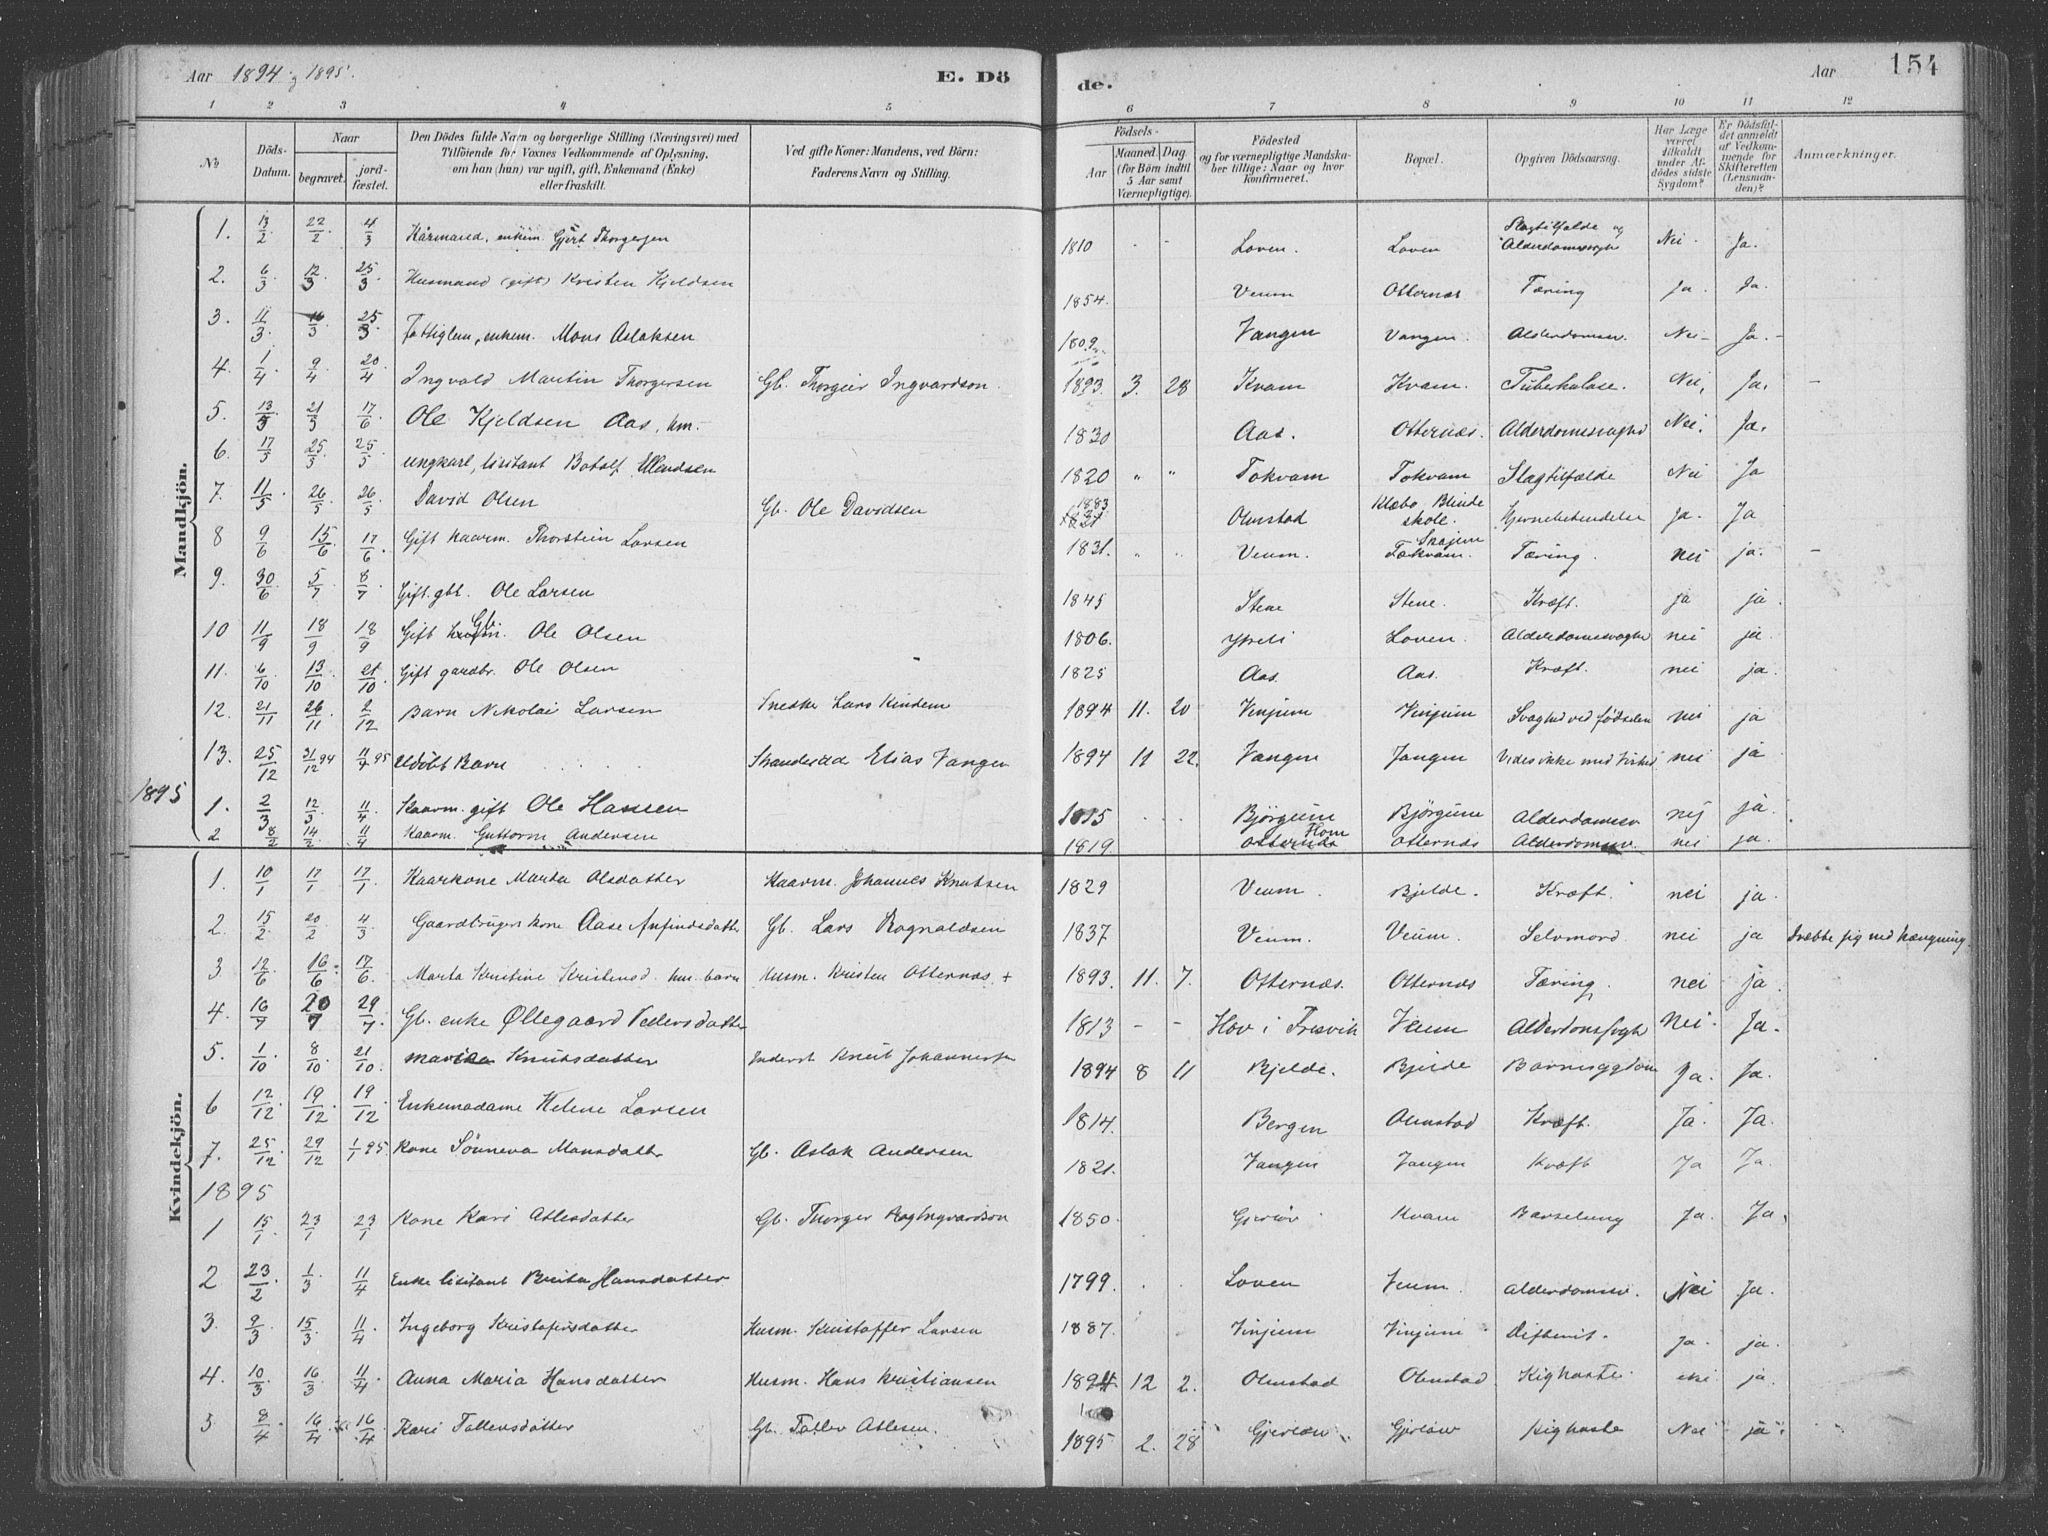 Aar 1894 og 1895.
E. Dö
de.
Aar
154
1 2 3 4 5 6 7 8 9 10 11 12
No
Döds-Datum.
Naar
begravet.
jord-fæstet.
Den Dödes fulde Navn og borgerlige Stilling (Næringsvei) med Tilföiende for Voxnes Vedkommende af Oplysning, om han (hun) var ugift, gift, Enkemand (Enke) eller fraskilt.
Ved gifte Koner: Mandens, ved Börn: Faderens Navn og Stilling.
Födsels-
Aar
Maaned. Dag. (for Börn indtil 5 Aar samt Værnepligtige).
Födested og for værnepligtige Mandskaber tillige: Naar og hvor Konfirmeret.
Bopæl.
Opgiven Dödsaarsag.
Har Læge været tilkaldt under Afdödes sidste Sygdom?
Er Dödsfaldet anmeldt af Vedkommende for Skifteretten (Lensmanden)?
Anmærkninger.
Mandkjön.
1. 13/2 22/2 4/3 Kårmand, enkem. Gjert Thorgersen 1810 - - Loven. Loven Slagtilfælde og Alderdomssvagh Nei. Ja.
2. 6/3 12/3 25/3 Husmand (gift) Kristen Kjeldsen 1854. Veum Otternæs Tæring Ja. Ja.
3. 11/3 16/3 25/3 Fattiglem, enkem. Mons Aslaksen 1809 Vangen Vangen. Alderdomssv. Nei - Ja. -
4. 1/4 9/4 20/4 Ingvald Martin Thorgersen Gb. Thorgeir Ingvardson. 1893. 3. 28 Kvam Kvam. Tuberkulose. Nei, Ja. -
5. 13/5 21/5 17/6 Ole Kjeldsen Aas, km. 1830 Aas. Otternæs. Alderdomssvaghed Nei. Ja.
6. 17/5 25/5 25/5 ungkarl, lisitant Botolf Ellendsen 1820 " " Tokvam Tokvam Slagtilfælde Nei Ja
7. 11/5 26/5 26/5 David Olsen Gb. Ole Davidsen 1883 Olmstad Klæbo Blinde skole. Hjernebetændelse ja. Ja
8 9/6 15/6 17/6 Gift kaarm. Thorstein Larsen 1831. " " Veum. Tokvam. Tæring. nei ja. -
9. 30/6 5/7 8/7 Gift gbr. Ole Larsen 1845 Stene Stene. Kræft. ja ja.
10 11/9 18/9 18/9 Gift Gb. Ole Olsen 1806. Ytreli Loven. Alderdomssvaghe nei ja.
11. 6/10 13/10 21/10 Gift gardbr. Ole Olsen 1825 Aas. Aas. Kræft. nei ja.
12. 21/11 26/11 2/12 Barn Nikolai Larsen Snedker Lars Kindem 1894 11. 20 Vinjum Vinjum Svaghed ved födselen nei ja
13. 25/12 31/12 94 11/4 95 Udöbt Barn Strandsidd Elias Vangen 1894 12 22. Vangen Vangen Vides ikke med Vished nei ja
1895
1. 2/3 12/3 11/4 Kaarm. gift Ole Hansen 1815 Björgum Björgum Alderdomssv nej ja.
2 8/2 14/2 11/4 Kaarm. Guttorm Andersen 1819. Otternæs Otternæs Alderdomssv. nei ja.
Kvindekjön.
1. 10/1 17/1 17/1 Kaarkone Marta Olsdatter Kaarm. Johannes Knutsen 1829 Veum. Bjelde. Kræft. nei ja.
2. 15/2 20/2 4/3 Gaardbrugers kone Aase Anfindsdatter Gb. Lars Rognaldsen 1837 Veum. Veum. Selvmord. nei ja Dræbte sig ved hængning.
3. 12/6 16/6 17/6 Marta Kristine Kristensd. hus. barn Husm. Kristen Otternæs + 1893. 11. 7. Otternæs. Otternæs Tæring. nei ja.
4. 16/7 20/7 29/7 Gb. enke Øllegaard Pedersdatter 1813 - - Hov i Fresvik Veum Alderdomssvagh Nei. Ja.
5. 1/10 8/10 21/10. Marina Knutsdatter Inderst Knut Johannessen 1894 8 11 Bjelde. Bjelde Barnesygdom Ja. Ja.
6 12/12 19/12 19/12 Enkemadame Helene Larsen 1814. Bergen Olmstad Kræft. Ja. Ja.
7. 25/12 29/12 1/1 95 Kone Sönneva Monsdatter Gb. Aslak Andersen 1821. Vangen Vangen Kræft Ja Ja.
1895
1 15/1 23/1 23/1 Kone Kari Atlesdatter Gb. Thorger Ingvardson 1850. Gjerløv Kvam Barselseng Ja. Ja.
2 23/2 1/3 11/4 Enke lisitant Brita Hansdatter 1799. Loven Veum. Alderdomssv. Nei Ja.
3. 9/3 15/3 11/4 Ingeborg Kristofersdatter Husm. Kristoffer Larsen 1887. Vinjum Vinjum Difterit. Ja. ja
4. 10/3 16/3 11/4 Anna Maria Hansdatter Husm. Hans Kristiansen 1894. 12 2. Olmstad Olmstad Kighoste. nei ja.
5 8/4 16/4 16/4 Kari Tollevsdatter Gb. Tollev Atlesen. 1895 2. 28 Gjerløv Gjerløv Kighoste Nei ja.